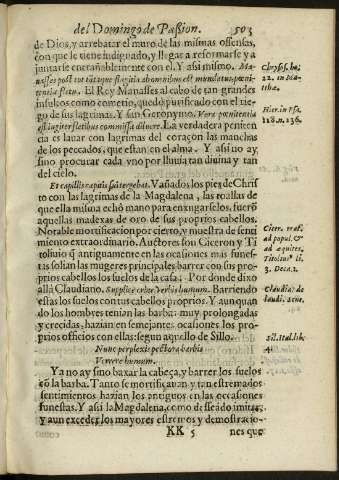 del Domingo de Passion. 503
de Dios, y arrebatar el muro de las mismas ofensas,
con que le tiene indignado, y llegar a reformarse y a
juntarse entrañablemente con el. Y asi mismo. Ma-
nasses post tot tátaque flagitia abominibus est mundatus, pœni-
tentia fletu. El Rey Manasses al cabo de tan grandes
insultos como cometio, quedò purificado con el riego
de sus lagrimas. Y san Geronymo. Vera pœnitentia
est iugiter fletibus commissa diluere. La verdadera peniten
cia es lauar con lagrimas del coraçon las manchas
de los peccados, que estan en el alma. Y asi no ay,
sino procurar cada vno por lluuia tan diuina y tan
del cielo.
Et capillis capitis sui tergebat. Vañados los pies de Chris
to con las lagrimas de la Magdalena, las toallas de
que ella misma echò mano para enxugarselos, fuerō
aquellas madexas de oro de sus proprios cabellos.
Notable mortificacion por cierto, y nuestra de senti
miento extraordinario. Auctores son Ciceron y Ti
to liuio q̃ antiguamente en las ocasiones mas funes-
tas solian las mugeres principales barrer con sus pro
prios cabellos los suelos de la casa: Por donde dixo
allà Claudiano. Supplice celor Verbis humum. Barriendo
estàs los suelos con tus cabellos proprios. Y aun quan
do los hombres tenian las barbas muy prolongadas
y crecidas, hazian en semejantes ocasiones los pro-
prios officios con ellas: segun aquello de Sillo.
Nunc perplexis pectora barbis
Verrere humum.
Ya no ay sino baxar la cabeça, y barrer los suelos
cō la barba. Tanto se mortificauan y tan estremados
sentimientos hazian los antiguos en las ocasiones
funestas. Y asi la Magdalena, como desseando imitar,
y aun exceder los mayores estremos y demostracio-
KK 5 nes que
Chrysost. ho.
22. in Ma-
tthæ.
Hier. in Psa.
118. n. 136.
Cicer. trof.
ad popul. &
ad æquites.
Titolius li.
3. Deca. 1.
Claudia. de
laudi. Sene.
Sil. Ital. lib.
4.